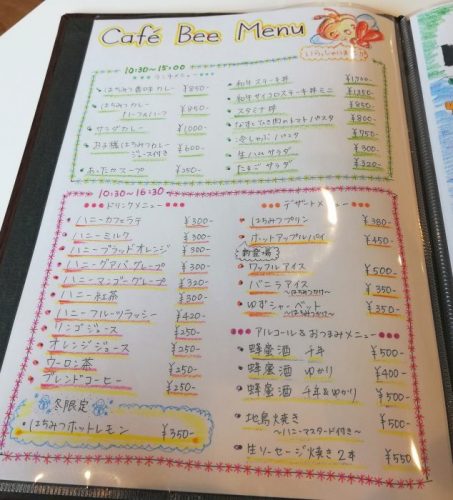 Café Bee Menu
いらっしゃいませ
10:30~15:00
ランチメニュー
はちみつ香味カレー ¥850-
はちみつカレー
ハーフ&ハーフ ¥850-
サラダカレー ¥1000-
お子様はちみつカレー
ジュース付き ¥600-
あったかスープ ¥250-
和牛ステーキ丼 ¥1700-
和牛サイコロステーキ丼ミニ ¥1350-
スタミナ丼 ¥850-
なすとひき肉のトマトパスタ ¥800-
冷しゃぶパスタ ¥750-
生ハムサラダ ¥300-
たまごサラダ ¥320-
10:30~16:30
ドリンクメニュー
ハニーカフェラテ ¥300-
ハニーミルク ¥300-
ハニーブラッドオレンジ ¥300-
ハニーグァバグレープ ¥300-
ハニーマンゴーグレープ ¥320-
ハニー紅茶 ¥300-
ハニーフルーツラッシー ¥420-
リンゴジュース ¥250-
オレンジジュース ¥250-
ウーロン茶 ¥250-
ブレンドコーヒー ¥250-
冬限定
はちみつホットレモン ¥350-
デザートメニュー
はちみつプリン ¥380-
ホットアップルパイ ¥450-
新登場
ワッフルアイス ¥500-
バニラアイス
~はちみつかけ~ ¥350-
ゆずシャーベット
~はちみつかけ~ ¥350-
アルコール&おつまみメニュー
蜂蜜酒 千年 ¥500-
蜂蜜酒 ゆかり ¥400-
蜂蜜酒 千年&ゆかり ¥500-
地鳥焼き
~ハニーマスタード付き~ ¥500-
生ソーセージ焼き2本 ¥550